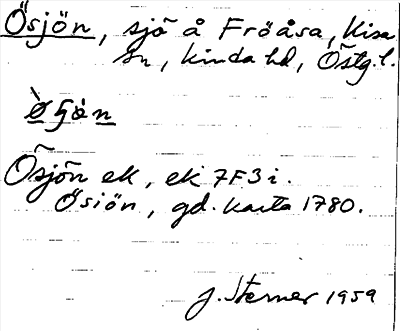 Ösjön, sjö å Fröåsa, Kisa
sn, Kinda hd, Östg.l.
Ösjön ek, ek 7F3i.
Ösiön, gd. karta 1780.
J. Sterner 1959